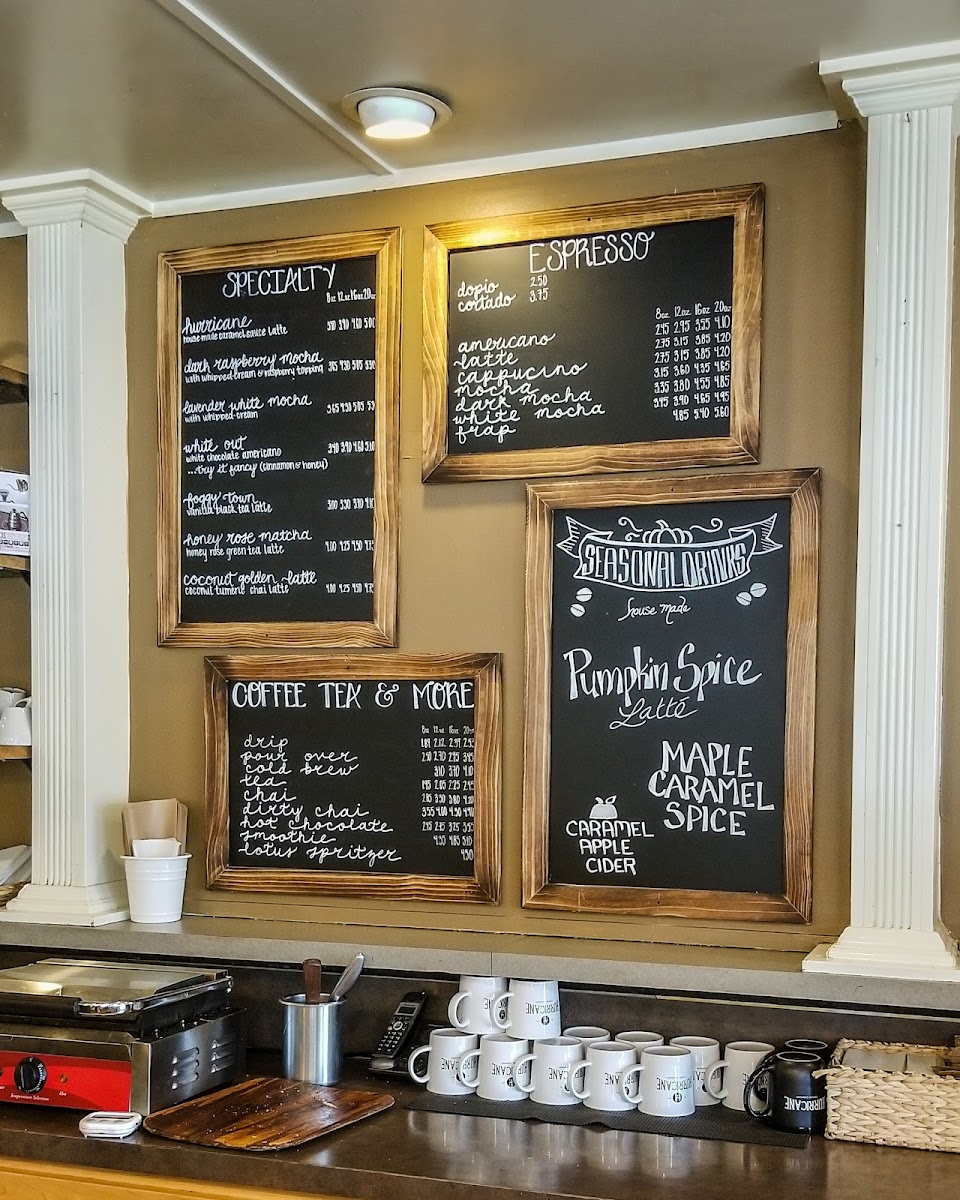 SPECIALTY
8oz 12oz 16oz 20oz
hurricane
house made caramel sauce latte
dark raspberry mocha
with whipped cream & raspberry topping
lavender white mocha
with whipped cream
white out
white chocolate americano
...try it fancy (cinnamon & honey)
foggy town
vanilla black tea latte
honey rose matcha
honey rose green tea latte
4.00 4.25 4.50 4.75
coconut golden latte
coconut tumeric chai latte
4.00 4.25 4.50 4.75
ESPRESSO
dopio 2.50
cortado 3.75
8oz 12oz 16oz 20oz
americano 2.45 2.95 3.55 4.10
latte 2.75 3.15 3.85 4.20
cappucino 2.75 3.15 3.85 4.20
mocha 3.15 3.60 4.35 4.65
dark mocha 3.35 3.80 4.55 4.85
white mocha 3.45 3.90 4.65 4.95
frap 4.85 5.40 5.60
COFFEE TEA & MORE
8oz 12oz 16oz 20oz
drip
pour over
cold brew 3.10 3.70 4.10
tea
chai
dirty chai
hot chocolate
smoothie
lotus spritzer 4.50
SEASONAL DRINKS
house made
Pumpkin Spice
Latte
MAPLE
CARAMEL
SPICE
CARAMEL
APPLE
CIDER
HURRICANE
HURRICANE
HURRICANE
HURRICANE
HURRICANE